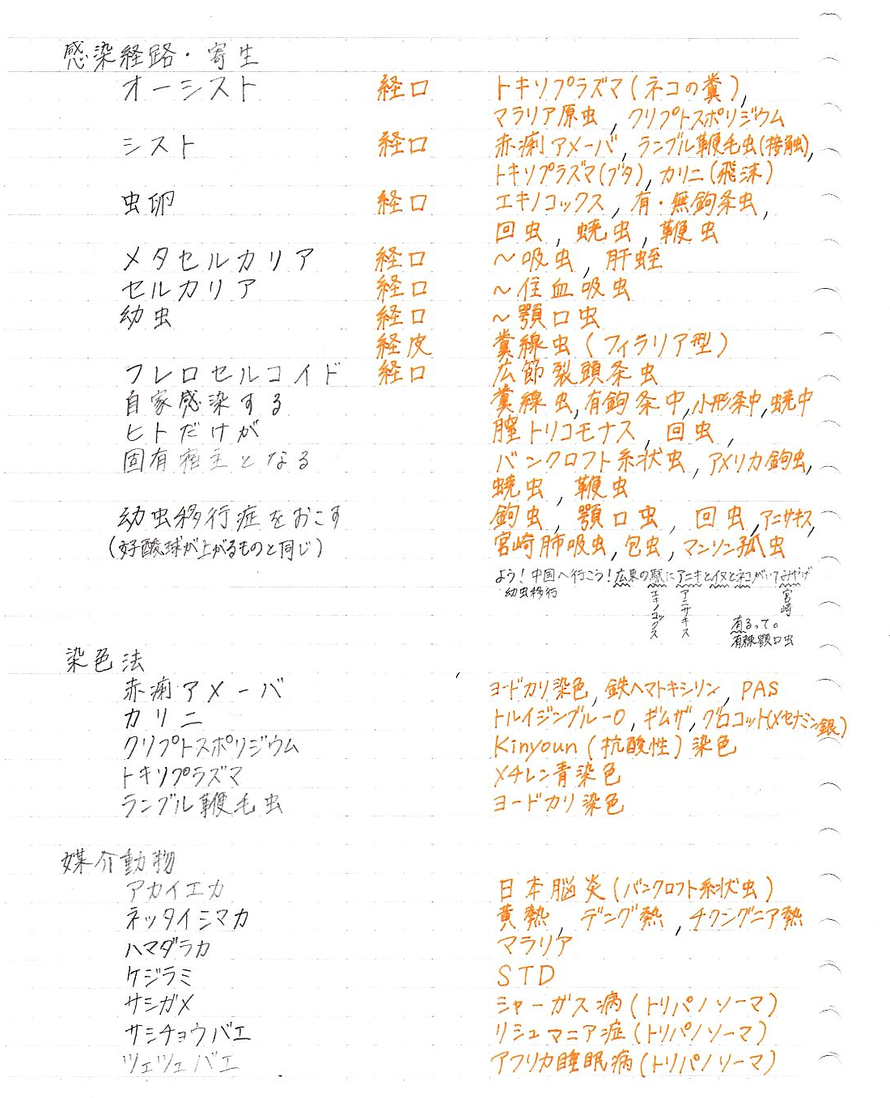 感染経路・寄生
オーシスト 経口 トキソプラズマ(ネコの糞),
マラリア原虫, クリプトスポリジウム
シスト 経口 赤痢アメーバ, ランブル鞭毛虫(接触),
トキソプラズマ(ブタ), カリニ(飛沫)
虫卵 経口 エキノコックス, 有・無鉤条虫,
回虫, 蟯虫, 鞭虫
メタセルカリア 経口 〜吸虫, 肝蛭
セルカリア 経口 〜住血吸虫
幼虫 経口 〜顎口虫
経皮 糞線虫(フィラリア型)
フレロセルコイド 経口 広節裂頭条虫
自家感染する 糞線虫,有鉤条中,小形条中,蟯中
ヒトだけが 膣トリコモナス, 回虫,
固有宿主となる バンクロフト糸状虫, アメリカ鉤虫,
蟯虫, 鞭虫
幼虫移行症をおこす 鉤虫, 顎口虫, 回虫,アニサキス,
(好酸球が上がるものと同じ) 宮崎肺吸虫,包虫,マンソン孤虫
よう!中国へ行こう!広東の駅にアニキとイヌとネコがいてみやげ
幼虫移行 エキノコックス アニサキス 宮崎
有るって。
有棘顎口虫
染色法
赤痢アメーバ ヨードカリ染色, 鉄ヘマトキシリン, PAS
カリニ トルイジンブルーO, ギムザ, グロコット(メセナミン銀)
クリプトスポリジウム Kinyoun(抗酸性)染色
トキソプラズマ メチレン青染色
ランブル鞭毛虫 ヨードカリ染色
媒介動物
アカイエカ 日本脳炎(バンクロフト糸状虫)
ネッタイシマカ 黄熱, デング熱, チクングニア熱
ハマダラカ マラリア
ケジラミ STD
サシガメ シャーガス病(トリパノソーマ)
サシチョウバエ リシュマニア症(トリパノソーマ)
ツェツェバエ アフリカ睡眠病(トリパノソーマ)